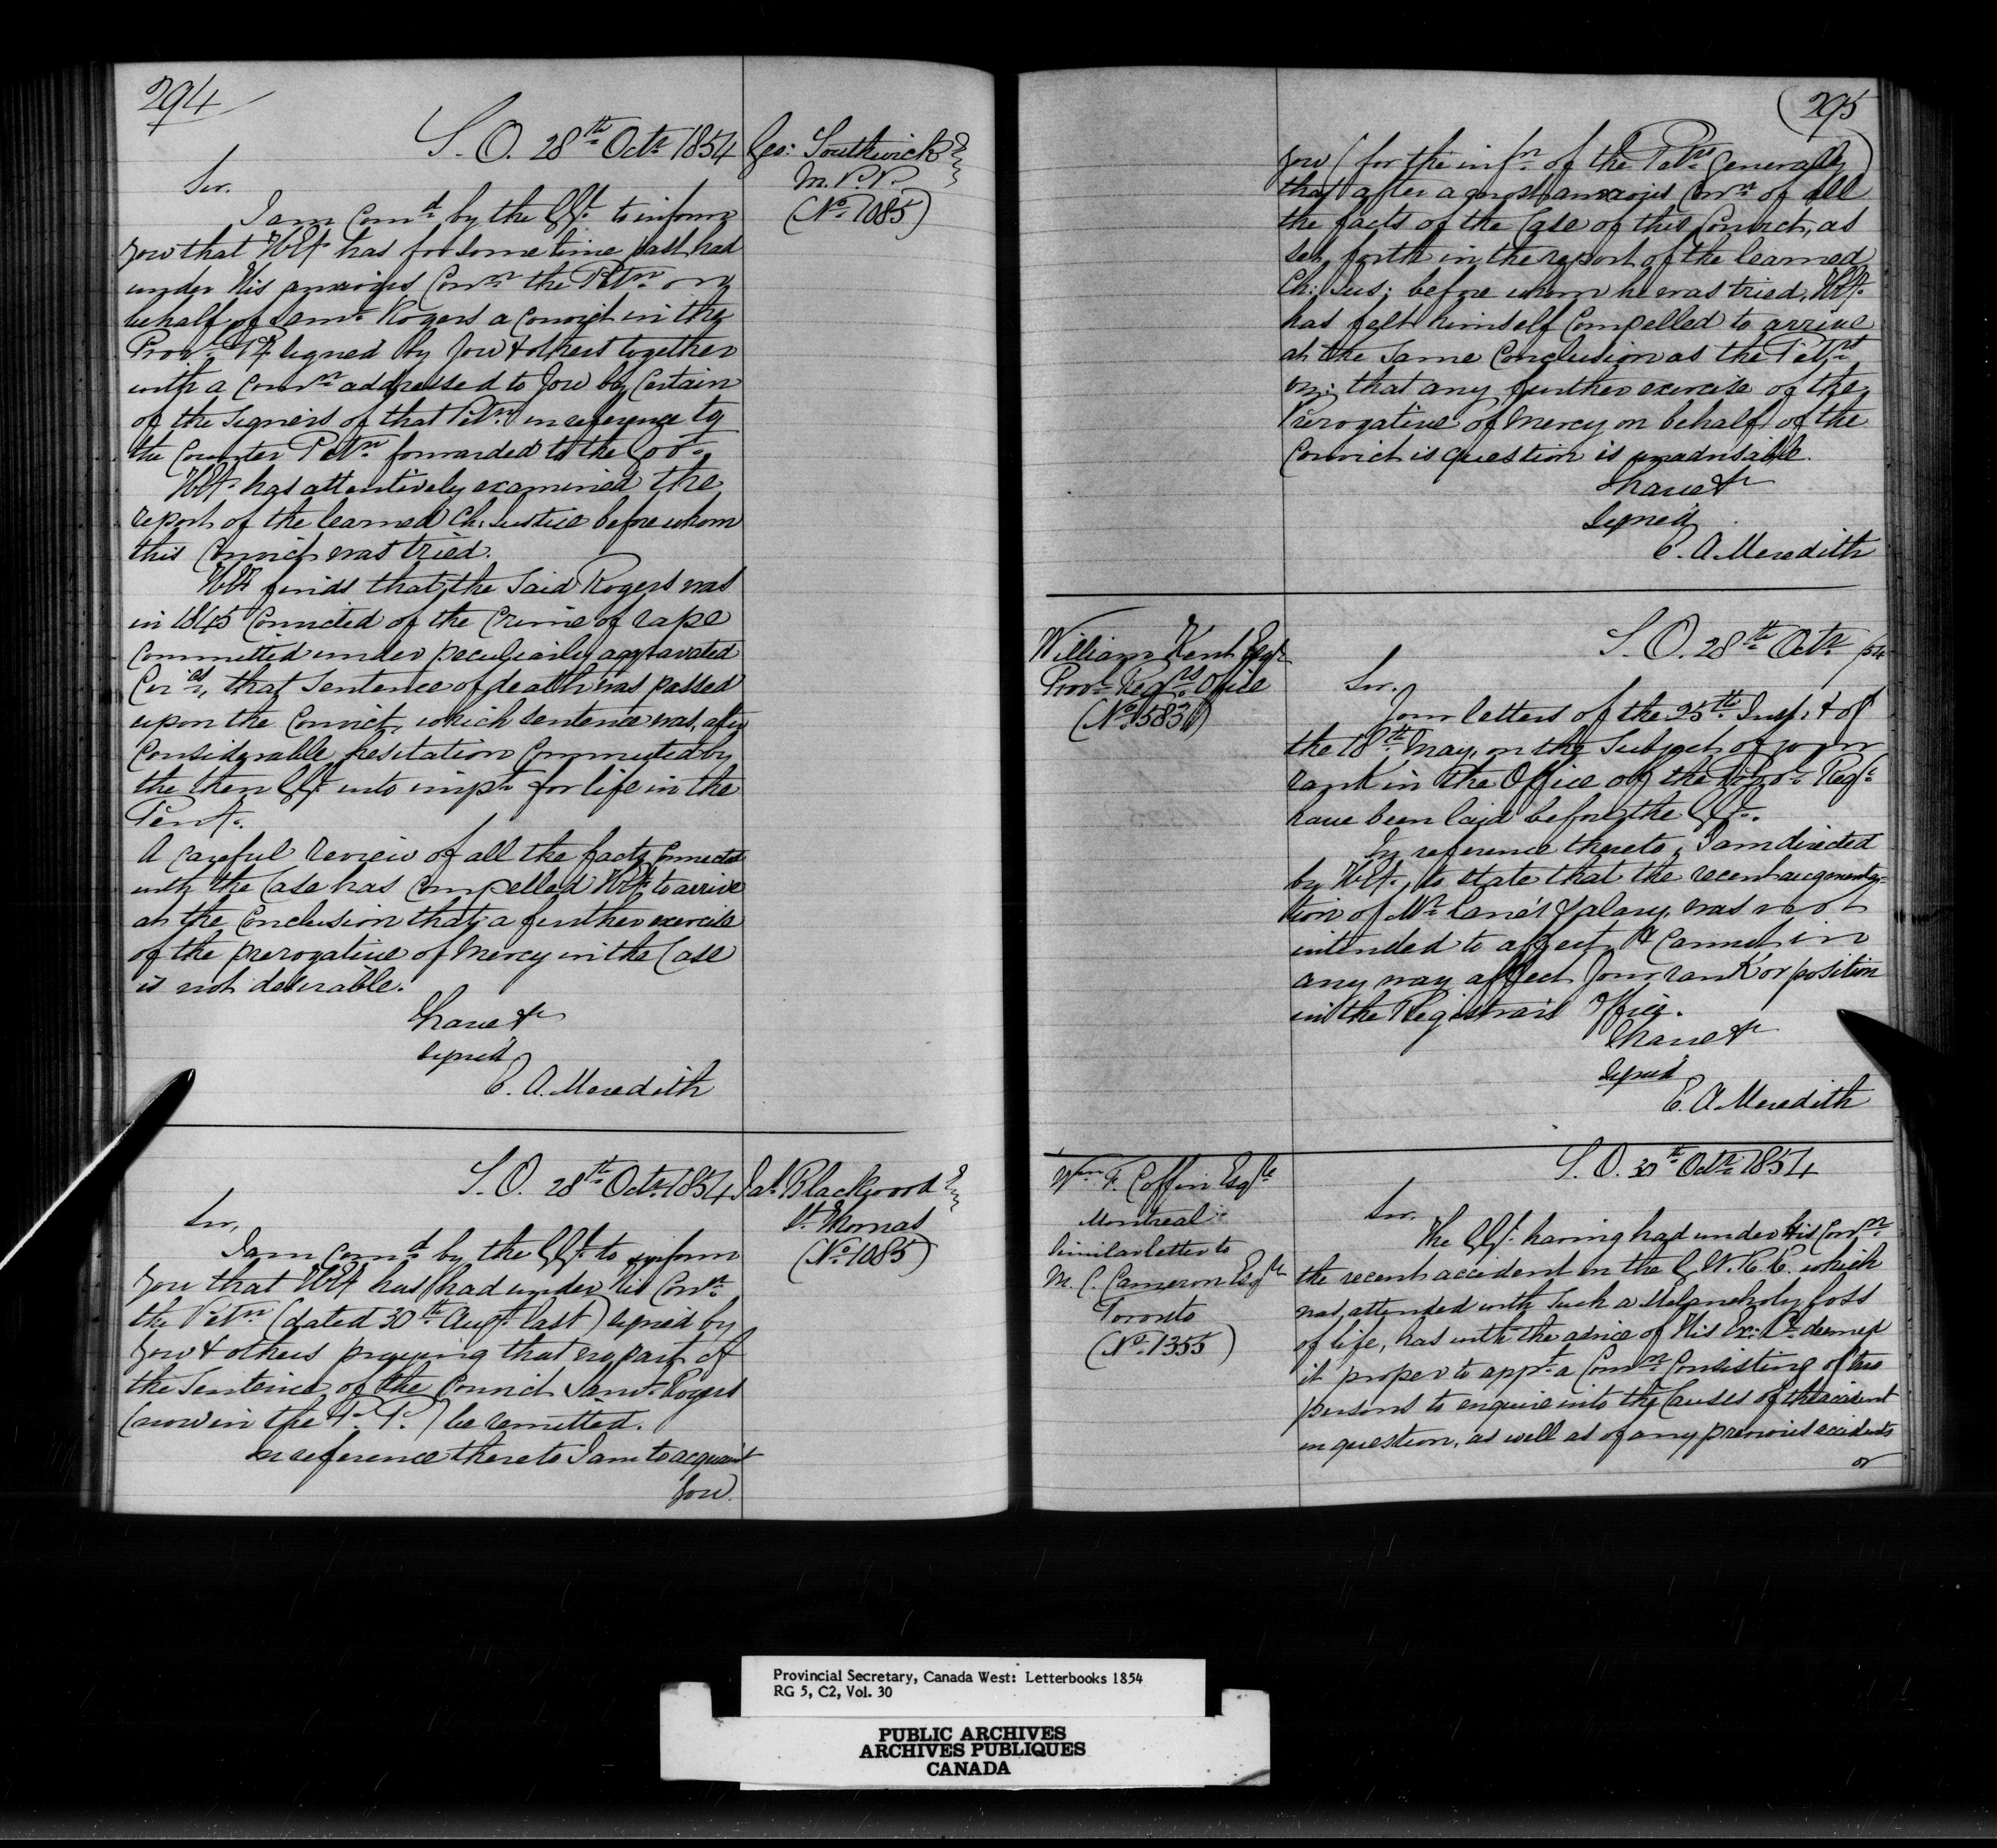 294
S. O. 28th Octr 1854
Geo: Southwick
M. P. P.
(No 1085)
Sir.
I am Comd by the GG. to inform
you that HEx has for some time past had
under His anxious Conn the Petn on
behalf of Saml Rogers a Convict in the
Provl Py signed by you & others together
with a Comn addressed to you by Certain
of the Signers of that Petn in reference to
the Counter Petn forwarded to the Govt
HEx has attentively examined the
report of the learned Ch: Justice before whom
this Convict was tried.
HEx finds that the Said Rogers was
in 1845 Convicted of the Crime of rape
Committed under peculiarly aggravated
Circes, that Sentence of death was passed
upon the Convict, which sentence was, after
Considerable hesitation Commuted by
the then GG. into impt for life in the
Peny.
A Careful review of all the facts Connected
with the Case has Compelled HEx to arrive
at the Conclusion that a further exercise
of the prerogative of Mercy in the Case
is not desirable.
I have &c
signed
E. A. Meredith
S. O. 28th Octr 1854
Jas Blackwood
St. Thomas
(No 1085)
Sir,
I am Comd by the GG. to inform
you that HEx has had under His Conn
the Petn (dated 30th Augt last) signed by
you & others praying that no part of
the Sentence of the Convict Saml Rogers
(now in the P. P.) be remitted.
In reference thereto I am to acquaint
you.
295
you (for the infn of the Petrs generally)
that after a most anxious Conn of all
the facts of the Case of this Convict, as
set forth in the report of the learned
Ch: Jus: before whom he was tried, HEx.
has felt himself Compelled to arrive
at the Same Conclusion as the Petrs
viz: that any further exercise of the
Prerogative of Mercy on behalf of the
Convict is question is unadvisable.
I have &c
Signed
E. A. Meredith
William Kent Esqr
Provl Regrs Office
(No 1583)
S. O. 28th Octr /54
Sir.
Your letters of the 25th Inst. & of
the 18th May, on the Subject of your
rank in the Office of the Provl Regr
have been laid before the GG.
In reference thereto, I am directed
by HEx., to state that the recent augmenta-
tion of Mr Lane's Salary, was not
intended to affect, & Cannot in
any way affect your rank or position
in the Registrars Office.
I have &c
signed
E. A. Meredith
Wm F. Coffin Esqre
Montreal
Similar letter to
M. C. Cameron Esqre
Toronto
(No 1355)
S. O. 30th Octr 1854
Sir.
The GG. having had under His Conn
the recent accident on the G. W. R. R. which
was attended with such a Melancholy loss
of life, has with the advice of His Ex: Cl deemed
it proper to appt a Comn Consisting of two
persons to enquire into the Causes of the accident
in question, as well as of any previous accidents
or
Provincial Secretary, Canada West: Letterbooks 1854
RG 5, C2, Vol. 30
PUBLIC ARCHIVES
ARCHIVES PUBLIQUES
CANADA